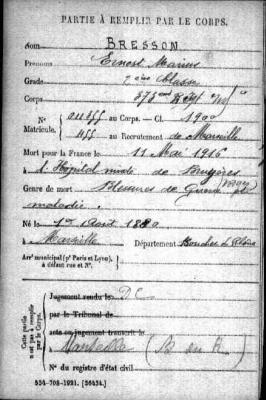 PARTIE À REMPLIR PAR LE CORPS.
Nom BRESSON
Prénoms Ernest Marius
Grade 2ème Classe
Corps 375eme Régt
N° 011355 au Corps. — Cl. 1900
Matricule. 1155 au Recrutement de Marseille
Mort pour la France le 11 Mai 1916
à l'Hopital mixte de Bruyères
Genre de mort Blessures de Guerre
maladie.
Né le 1er Août 1880
à Marseille Département Bouches du Rhône
Arrt municipal (pr Paris et Lyon),
à défaut rue et N°.
Cette partie n'est pas à remplir par le Corps.
Jugement rendu le
par le Tribunal de
acte ou jugement transcrit le
à Marseille (B du R)
N° du registre d'état civil
534-708-1921. [26434.]